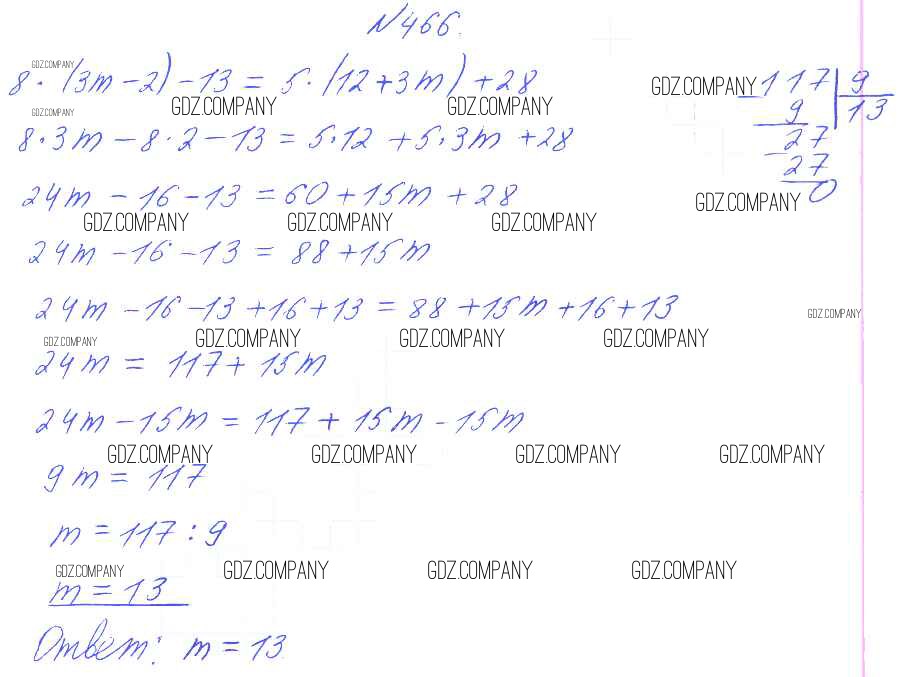 N466.
GDZ.COMPANY
8·(3m-2)-13=5·(12+3m)+28
GDZ.COMPANY GDZ.COMPANY GDZ.COMPANY
8·3m-8·2-13=5·12+5·3m+28
24m-16-13=60+15m+28
GDZ.COMPANY GDZ.COMPANY GDZ.COMPANY
24m-16-13=88+15m
24m-16-13+16+13=88+15m+16+13
GDZ.COMPANY GDZ.COMPANY GDZ.COMPANY GDZ.COMPANY
24m=117+15m
24m-15m=117+15m-15m
GDZ.COMPANY GDZ.COMPANY GDZ.COMPANY GDZ.COMPANY
9m=117
m=117:9
GDZ.COMPANY GDZ.COMPANY GDZ.COMPANY GDZ.COMPANY
m=13
Ответ: m=13
GDZ.COMPANY
-117 9
9 13
-27
27
0
GDZ.COMPANY
GDZ.COMPANY